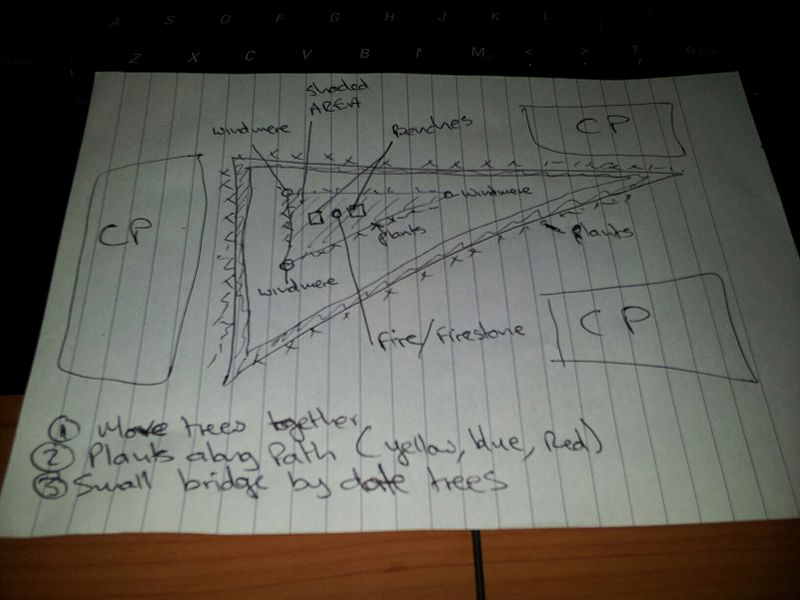 A S D F G H J K L
Z X C V B N M < > ?
shaded
AREA
windmere
Benches
CP
CP
windmere
plants
plants
windmere
CP
fire/firestone
① Move trees together
② Plants along Path (yellow, blue, Red)
③ Small bridge by date trees